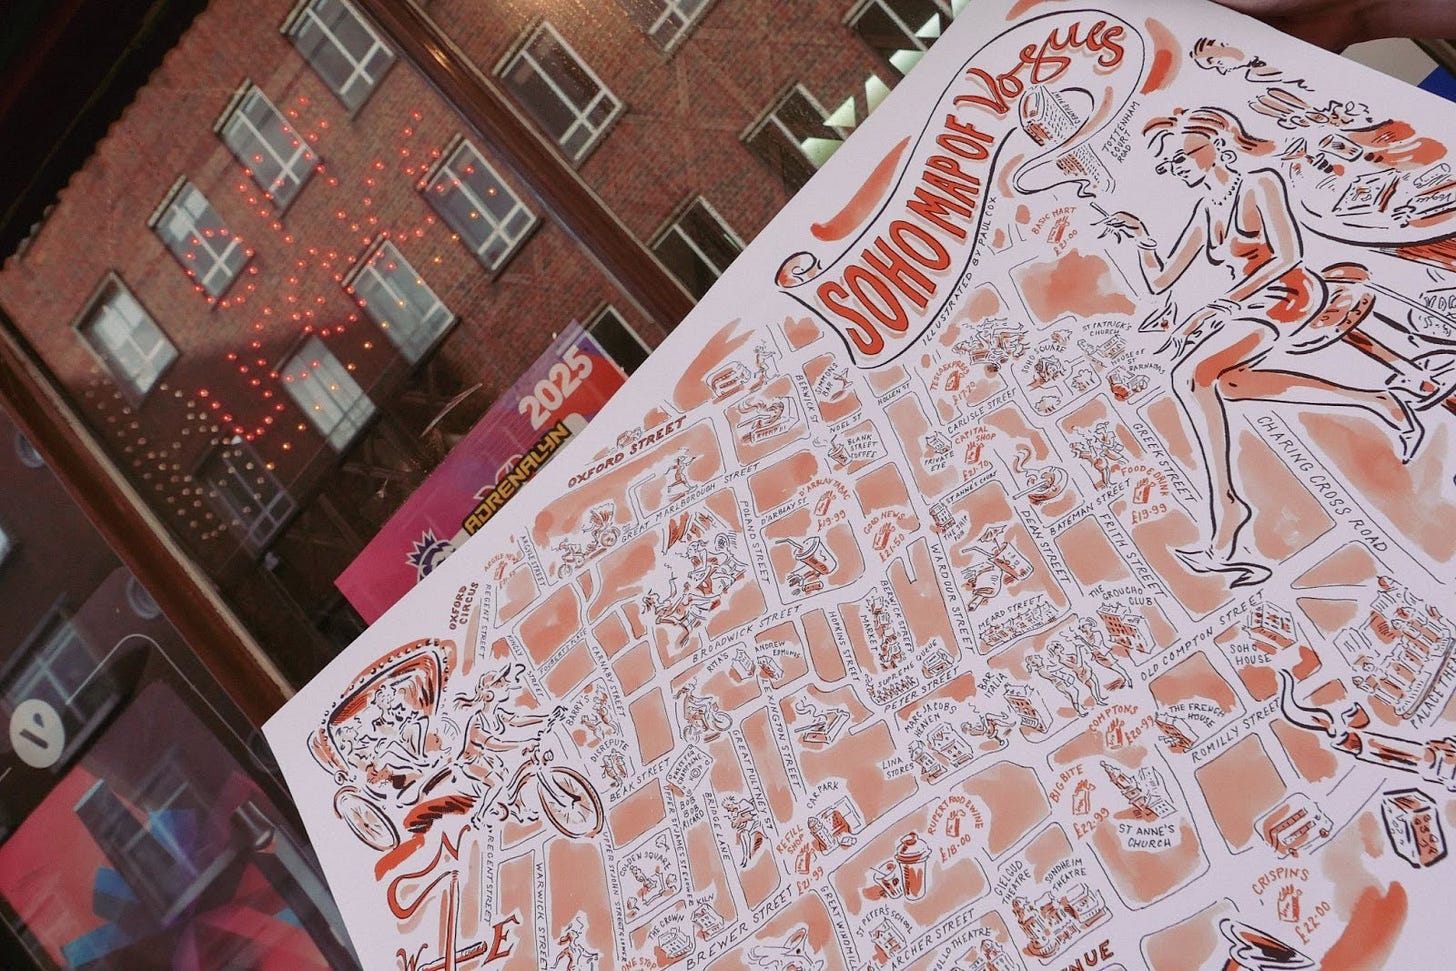 SOHO MAP OF Vogues
ILLUSTRATED BY PAUL COX
TOTTENHAM
COURT
ROAD
BASIC MART
£23.00
2025
ADRENALYN
OXFORD STREET
OXFORD
CIRCUS
REGENT STREET
ARGYLL STREET
GREAT MARLBOROUGH STREET
BERWICK ST
NOEL ST
HOLLEN ST
BLANK
STREET
COFFEE
POLAND STREET
D'ARBLAY ST
D'ARBLAY TABAC
£19.99
GOOD NEWS
£21.50
CARLISLE STREET
SOHO SQUARE
ST PATRICK'S
CHURCH
HOUSE OF
ST
BARNABAS
PRIVATE
EYE
CAPITAL
SHOP
£21.70
ST ANNE'S COURT
THE SHIP
WARDOUR STREET
DEAN STREET
BATEMAN STREET
FRITH STREET
GREEK STREET
FOOD & DRINK
£19.99
CHARING CROSS ROAD
MEARD STREET
THE
GROUCHO
CLUB
OLD COMPTON STREET
SOHO
HOUSE
THE FRENCH
HOUSE
ROMILLY STREET
PALACE
COMPTONS
£20.99
BAR
ITALIA
BROADWICK STREET
HOPKINS STREET
BERWICK STREET
MARKET
SUPREME
QUEUE
PETER STREET
MARC JACOBS
HEAVEN
LINA
STORES
RITA'S
ANDREW
EDMUNDS
KINGLY STREET
CARNABY STREET
BEAK STREET
LEXINGTON STREET
GREAT PULTENEY ST
BRIDLE LANE
CAR PARK
REFILL
SHOP
£21.99
RUPERT FOOD & WINE
£18.00
BIG BITE
£22.99
ST ANNE'S
CHURCH
CRISPIN'S
£22.00
GIELGUD
THEATRE
SONDHEIM
THEATRE
GOLDEN SQUARE
THE CROWN
KILN
BREWER STREET
GREAT WINDMILL
ST PETER'S SCHOOL
ARCHER STREET
APOLLO THEATRE
REGENT STREET
WARWICK STREET
ONE STOP
W E